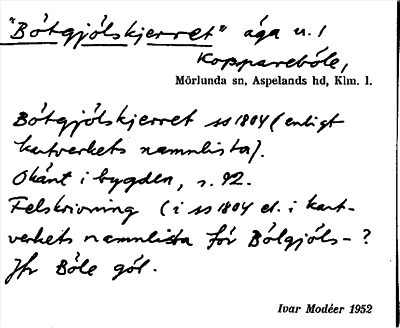 "Bötgjölskjerret" äga u. 1
Kopparebôle,
Mörlunda sn, Aspelands hd, Klm. l.
Bötgjölskjerret ss 1804 (enligt
kartverkets namnlista).
Okänt i bygden, s. 92.
Felskrivning (i ss 1804 el. i kart-
verkets namnlista för Bölgjöls-?
Jfr Böle göl.
Ivar Modéer 1952